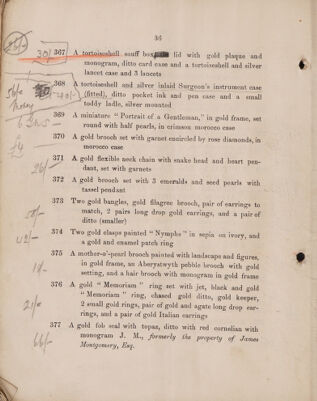 36
367 A tortoiseshell snuff box lid with gold plaque and
monogram, ditto card case and a tortoiseshell and silver
lancet case and 3 lancets
368 A tortoiseshell and silver inlaid Surgeon's instrument case
(fitted), ditto pocket ink and pen case and a small
toddy ladle, silver mounted
369 A miniature "Portrait of a Gentleman," in gold frame, set
round with half pearls, in crimson morocco case
370 A gold brooch set with garnet encircled by rose diamonds, in
morocco case
£4
371 A gold flexible neck chain with snake head and heart pen-
dant, set with garnets
26/-
372 A gold brooch set with 3 emeralds and seed pearls with
tassel pendant
373 Two gold bangles, gold filagree brooch, pair of earrings to
match, 2 pairs long drop gold earrings, and a pair of
ditto (smaller)
374 Two gold clasps painted "Nymphs" in sepia on ivory, and
a gold and enamel patch ring
42/-
375 A mother-o'-pearl brooch painted with landscape and figures,
in gold frame, an Aberystwyth pebble brooch with gold
setting, and a hair brooch with monogram in gold frame
376 A gold "Memoriam" ring set with jet, black and gold
"Memoriam" ring, chased gold ditto, gold keeper,
2 small gold rings, pair of gold and agate long drop ear-
rings, and a pair of gold Italian earrings
21/-
377 A gold fob seal with topaz, ditto with red cornelian with
monogram J. M., formerly the property of James
Montgomery, Esq.
66/-